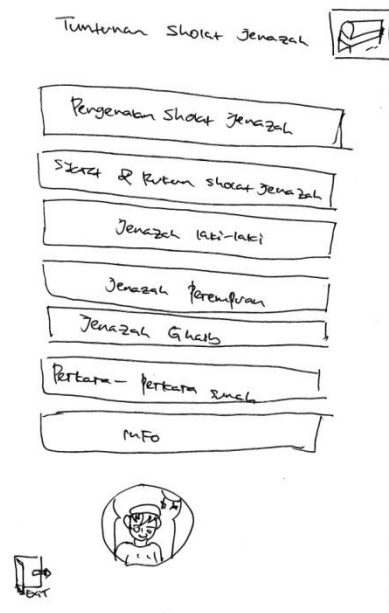 Tuntunan Sholat Jenazah
Pengenalan Sholat Jenazah
Syarat & Rukun Sholat Jenazah
Jenazah laki-laki
Jenazah Perempuan
Jenazah Ghaib
Perkara-perkara sunah
INFO
EXIT